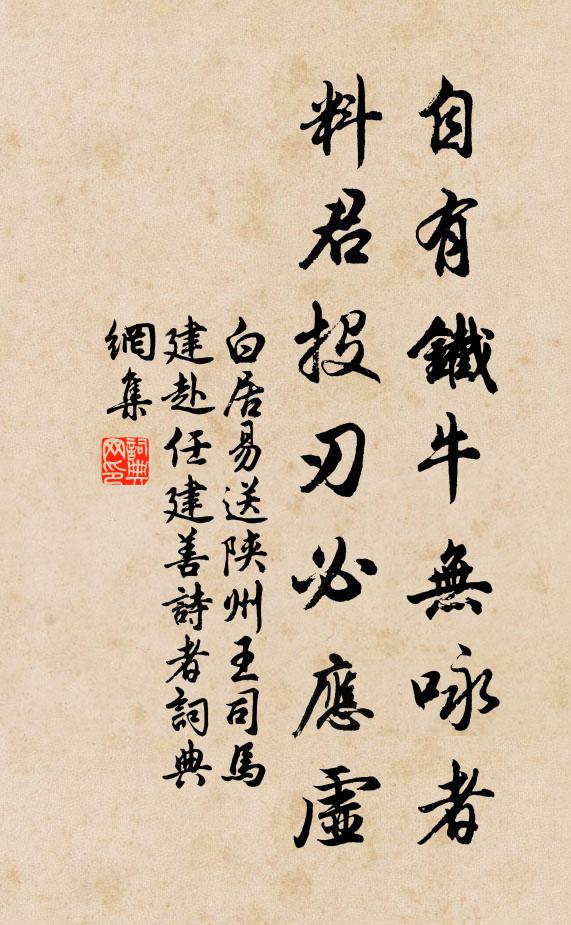 自有鐵牛無咏者
料君投刃必應虛
白居易送陝州王司馬
建赴任建善詩者詞典
網集
詞典网印